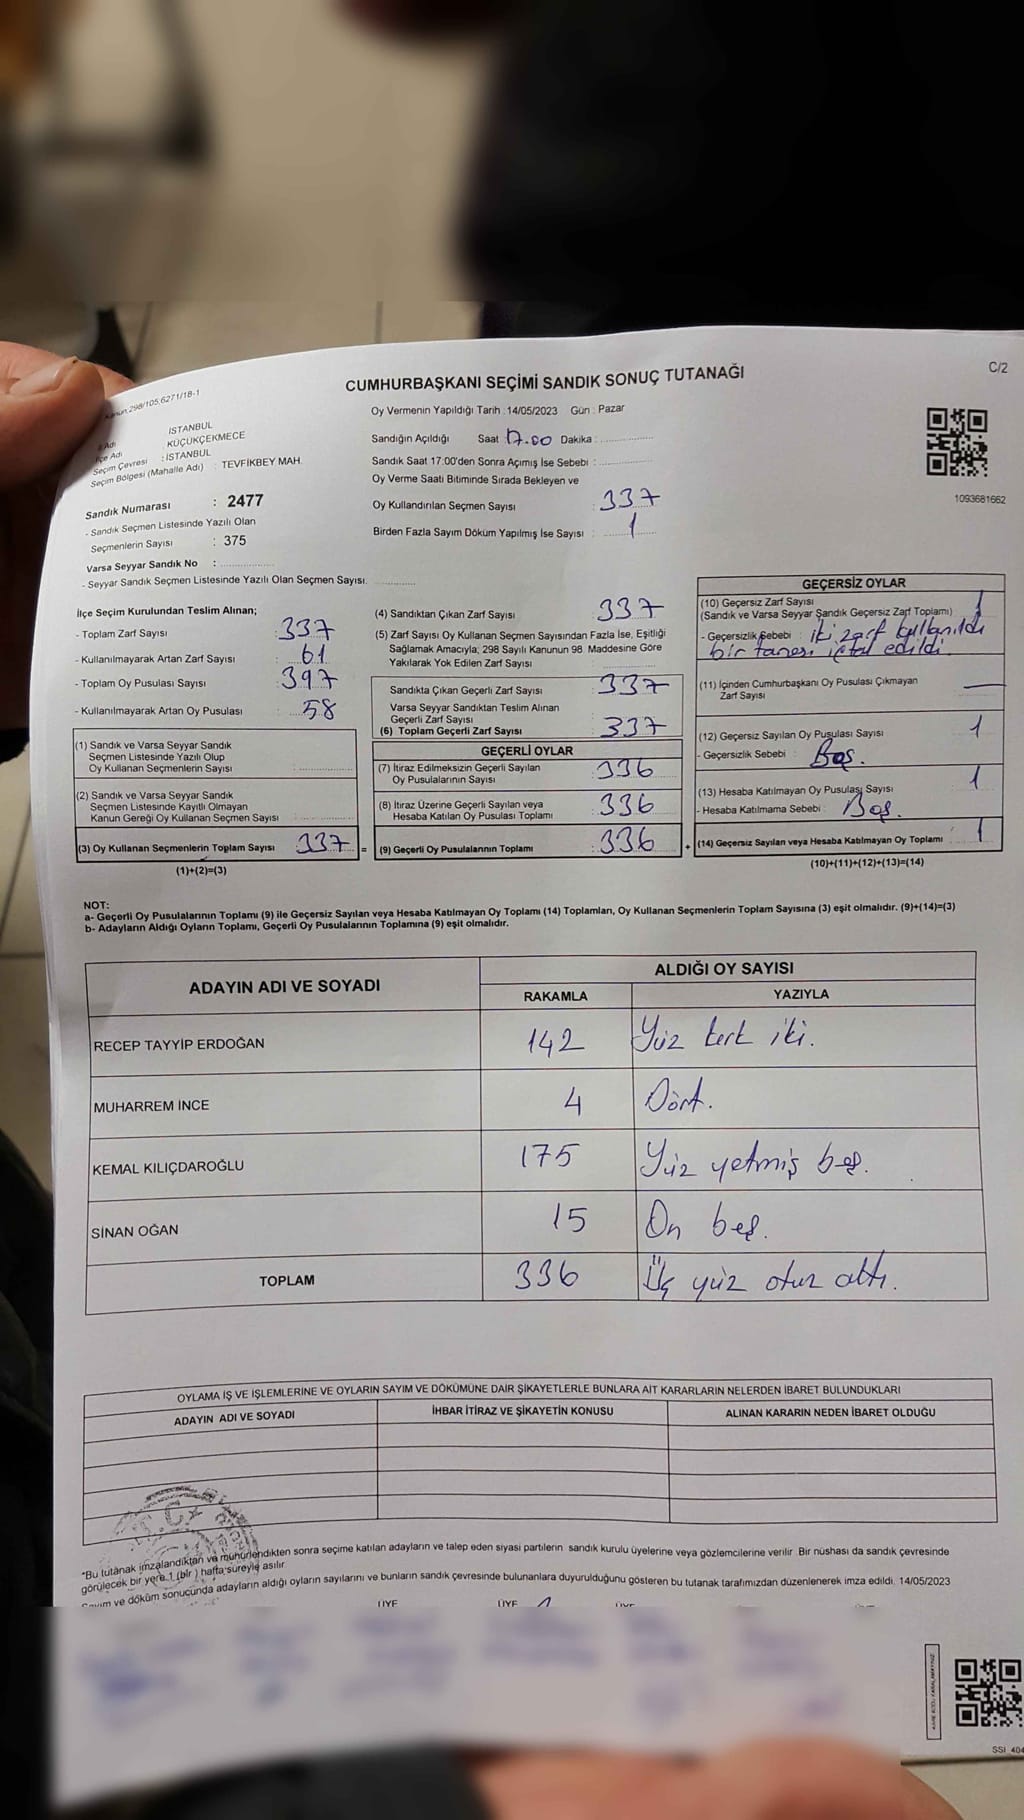 CUMHURBAŞKANI SEÇİMİ SANDIK SONUÇ TUTANAĞI
C/2
Kanun:298/105,6271/18-1
İl Adı İSTANBUL
İlçe Adı KÜÇÜKÇEKMECE
Seçim Çevresi : İSTANBUL
Seçim Bölgesi (Mahalle Adı) : TEVFİKBEY MAH.
Sandık Numarası : 2477
- Sandık Seçmen Listesinde Yazılı Olan
Seçmenlerin Sayısı : 375
Varsa Seyyar Sandık No :
- Seyyar Sandık Seçmen Listesinde Yazılı Olan Seçmen Sayısı.
Oy Vermenin Yapıldığı Tarih : 14/05/2023 Gün : Pazar
Sandığın Açıldığı Saat 17.00 Dakika :
Sandık Saat 17:00'den Sonra Açımış İse Sebebi :
Oy Verme Saati Bitiminde Sırada Bekleyen ve
Oy Kullandırılan Seçmen Sayısı : 337
Birden Fazla Sayım Döküm Yapılmış İse Sayısı : 1
1093681662
İlçe Seçim Kurulundan Teslim Alınan;
- Toplam Zarf Sayısı : 337
- Kullanılmayarak Artan Zarf Sayısı : 61
- Toplam Oy Pusulası Sayısı : 397
- Kullanılmayarak Artan Oy Pusulası : 58
(1) Sandık ve Varsa Seyyar Sandık
Seçmen Listesinde Yazılı Olup
Oy Kullanan Seçmenlerin Sayısı :
(2) Sandık ve Varsa Seyyar Sandık
Seçmen Listesinde Kayıtlı Olmayan
Kanun Gereği Oy Kullanan Seçmen Sayısı :
(3) Oy Kullanan Seçmenlerin Toplam Sayısı : 337 =
(1)+(2)=(3)
(4) Sandıktan Çıkan Zarf Sayısı : 337
(5) Zarf Sayısı Oy Kullanan Seçmen Sayısından Fazla İse, Eşitliği
Sağlamak Amacıyla; 298 Sayılı Kanunun 98. Maddesine Göre
Yakılarak Yok Edilen Zarf Sayısı :
Sandıkta Çıkan Geçerli Zarf Sayısı : 337
Varsa Seyyar Sandıktan Teslim Alınan
Geçerli Zarf Sayısı
(6) Toplam Geçerli Zarf Sayısı : 337
GEÇERLİ OYLAR
(7) İtiraz Edilmeksizin Geçerli Sayılan
Oy Pusulalarının Sayısı : 336
(8) İtiraz Üzerine Geçerli Sayılan veya
Hesaba Katılan Oy Pusulası Toplamı : 336
(9) Geçerli Oy Pusulalarının Toplamı : 336 +
GEÇERSİZ OYLAR
(10) Geçersiz Zarf Sayısı
(Sandık ve Varsa Seyyar Sandık Geçersiz Zarf Toplamı) 1
- Geçersizlik Sebebi : iki zarf kullanıldı
bir tanesi iptal edildi.
(11) İçinden Cumhurbaşkanı Oy Pusulası Çıkmayan
Zarf Sayısı —
(12) Geçersiz Sayılan Oy Pusulası Sayısı 1
- Geçersizlik Sebebi : Boş.
(13) Hesaba Katılmayan Oy Pusulası Sayısı 1
- Hesaba Katılmama Sebebi : Boş.
(14) Geçersiz Sayılan veya Hesaba Katılmayan Oy Toplamı 1
(10)+(11)+(12)+(13)=(14)
NOT:
a- Geçerli Oy Pusulalarının Toplamı (9) ile Geçersiz Sayılan veya Hesaba Katılmayan Oy Toplam (14) Toplamları, Oy Kullanan Seçmenlerin Toplam Sayısına (3) eşit olmalıdır. (9)+(14)=(3)
b- Adayların Aldığı Oyların Toplamı, Geçerli Oy Pusulalarının Toplamına (9) eşit olmalıdır.
ADAYIN ADI VE SOYADI ALDIĞI OY SAYISI
RAKAMLA YAZIYLA
RECEP TAYYİP ERDOĞAN 142 Yüz kırk iki.
MUHARREM İNCE 4 Dört.
KEMAL KILIÇDAROĞLU 175 Yüz yetmiş beş.
SİNAN OĞAN 15 On beş.
TOPLAM 336 Üç yüz otuz altı.
OYLAMA İŞ VE İŞLEMLERİNE VE OYLARIN SAYIM VE DÖKÜMÜNE DAİR ŞİKAYETLERLE BUNLARA AİT KARARLARIN NELERDEN İBARET BULUNDUKLARI
ADAYIN ADI VE SOYADI İHBAR İTİRAZ VE ŞİKAYETİN KONUSU ALINAN KARARIN NEDEN İBARET OLDUĞU
T.C.
*Bu tutanak imzalandıktan ve mühürlendikten sonra seçime katılan adayların ve talep eden siyasi partilerin sandık kurulu üyelerine veya gözlemcilerine verilir. Bir nüshası da sandık çevresinde
görülecek bir yere 1 (bir) hafta süreyle asılır.
Sayım ve döküm sonucunda adayların aldığı oyların sayılarını ve bunların sandık çevresinde bulunanlara duyurulduğunu gösteren bu tutanak tarafımızdan düzenlenerek imza edildi. 14/05/2023
ÜYE ÜYE ÜYE